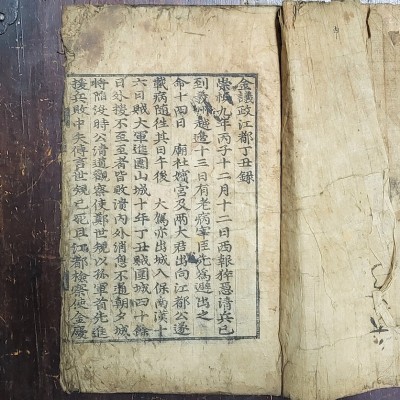 金議政江都丁丑錄
崇禎九年丙子十二月十二日西報猝急清兵已
到義州越邊十三日有老病宰臣先爲避出之
命十四日 廟社嬪宮及兩大君出向江都公遂
載病隨往其日午後 大駕亦出城入保南漢十
六日賊大軍進圍山城十年丁丑賊圍城四十餘
日外援不至至者皆敗潰內外消息不通朝夕城
將陷沒時公淸道觀察使鄭世規以孤軍首先進
援兵敗中矢傳言世規已死且江都檢察使金慶